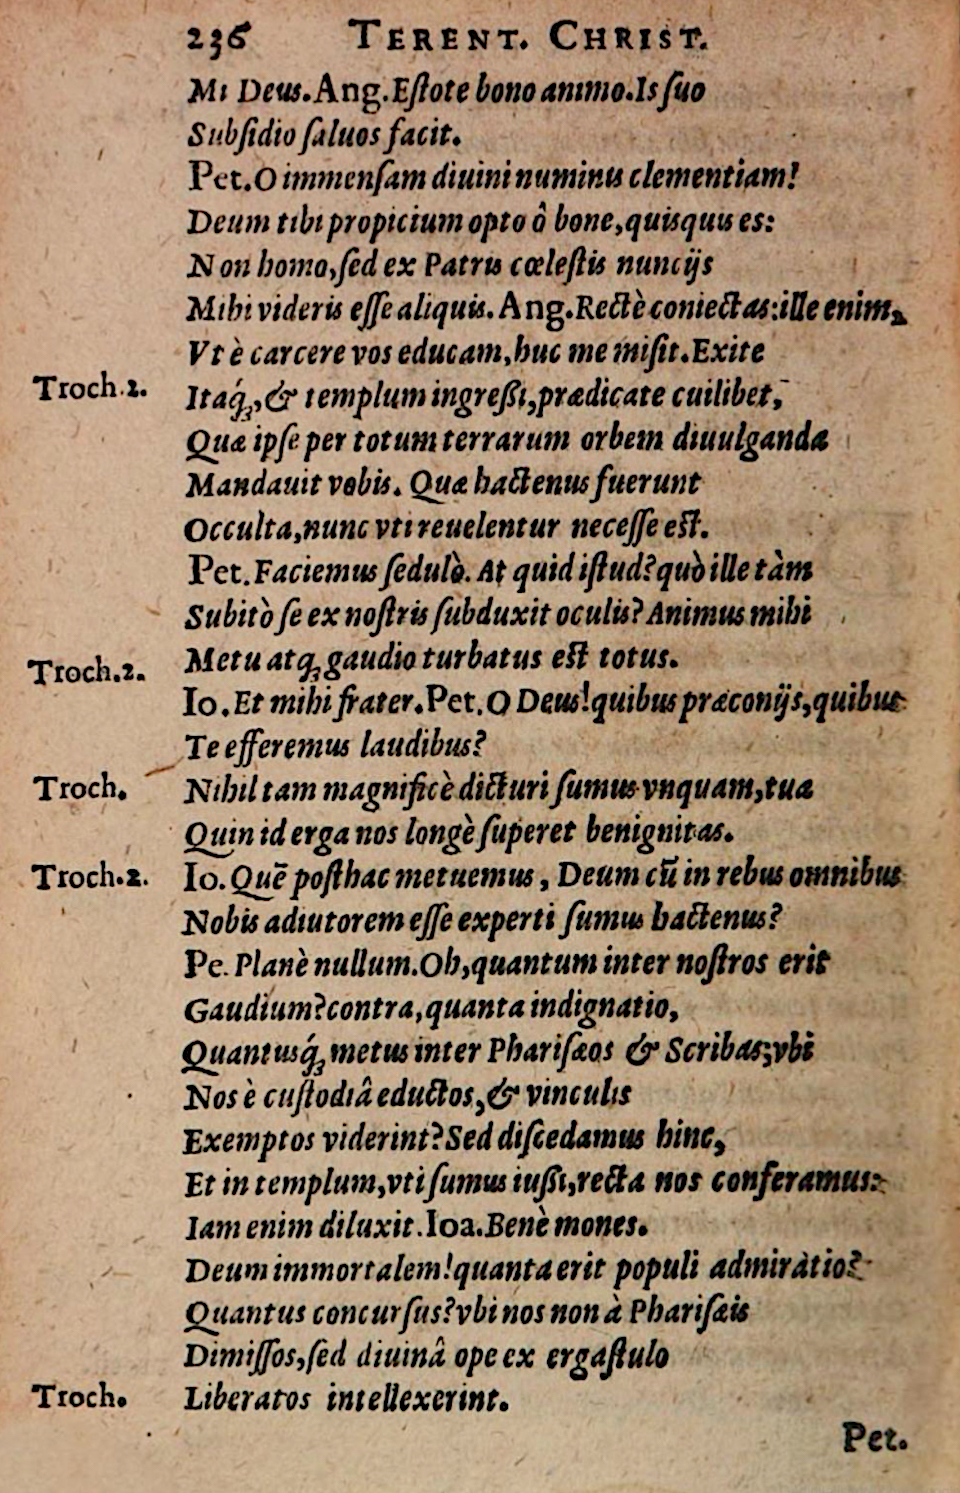 236 TERENT. CHRIST.
Mi Deus. Ang. Eſtote bono animo. Is ſuo
Subſidio ſaluos facit.
Pet. O immenſam diuini numinis clementiam!
Deum tibi propicium opto ô bone, quisquis es:
Non homo, ſed ex Patris cœleſtis nuncijs
Mihi videris eſſe aliquis. Ang. Rectè coniectas: ille enim,
Vt è carcere vos educam, huc me miſit. Exite
Troch. 2. Itaq́ꝫ, & templum ingreßi, prædicate cuilibet,
Quæ ipſe per totum terrarum orbem diuulganda
Mandauit vobis. Quæ hactenus fuerunt
Occulta, nunc vti reuelentur neceſſe eſt.
Pet. Faciemus ſedulò. At quid iſtud? quò ille tàm
Subitò ſe ex noſtris ſubduxit oculis? Animus mihi
Troch. 2. Metu atqꝫ gaudio turbatus eſt totus.
Io. Et mihi frater. Pet. O Deus! quibus præconijs, quibus
Te efferemus laudibus?
Troch. Nihil tam magnificè dicturi ſumus vnquam, tua
Quin id erga nos longè ſuperet benignitas.
Troch. 2. Io. Quẽ poſthac metuemus, Deum cũ in rebus omnibus
Nobis adiutorem eſſe experti ſumus hactenus?
Pe. Planè nullum. Oh, quantum inter noſtros erit
Gaudium? contra, quanta indignatio,
Quantusq́ꝫ metus inter Phariſæos & Scribas; vbi
Nos è cuſtodiâ eductos, & vinculis
Exemptos viderint? Sed diſcedamus hinc,
Et in templum, vti ſumus iußi, recta nos conferamus:
Iam enim diluxit. Ioa. Benè mones.
Deum immortalem! quanta erit populi admiràtio?
Quantus concurſus? vbi nos non à Phariſæis
Dimiſſos, ſed diuinâ ope ex ergaſtulo
Troch. Liberatos intellexerint.
Pet.